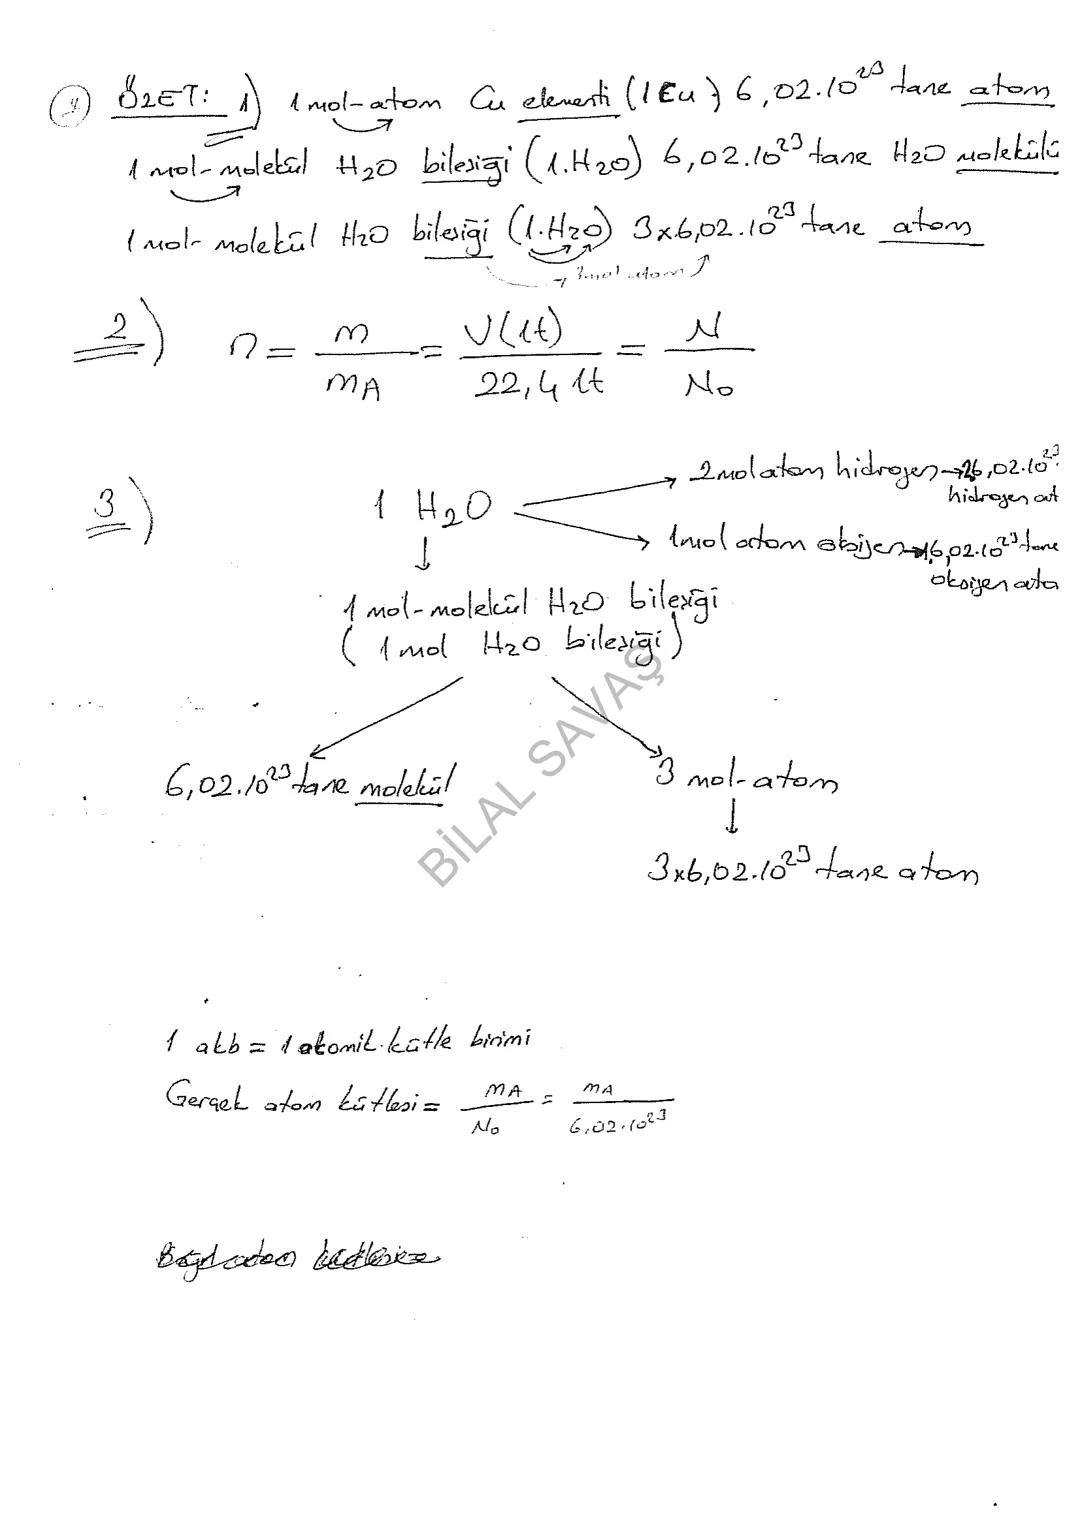 ÖZET: 1) 1 mol-atom Cu elementi (1 Cu) 6,02.10²³ tane atom
1 mol-molekül H₂O bileşiği (1.H₂O) 6,02.10²³ tane H₂O molekülü
1 mol-molekül H₂O bileşiği (1.H₂O) 3x6,02.10²³ tane atom
3mol atom
2) n = m/mA = V(lt)/22,4 lt = N/No
3) 1 H₂O
2 mol atom hidrojen → 2.6,02.10²³
hidrojen at
1 mol atom oksijen → 1.6,02.10²³ tane
oksijen ato
1 mol-molekül H₂O bileşiği
(1 mol H₂O bileşiği)
6,02.10²³ tane molekül
3 mol-atom
3x6,02.10²³ tane atom
BİLAL SAVAŞ
1 akb = 1 atomik kütle birimi
Gerçek atom kütlesi = mA/No = mA/6,02.10²³